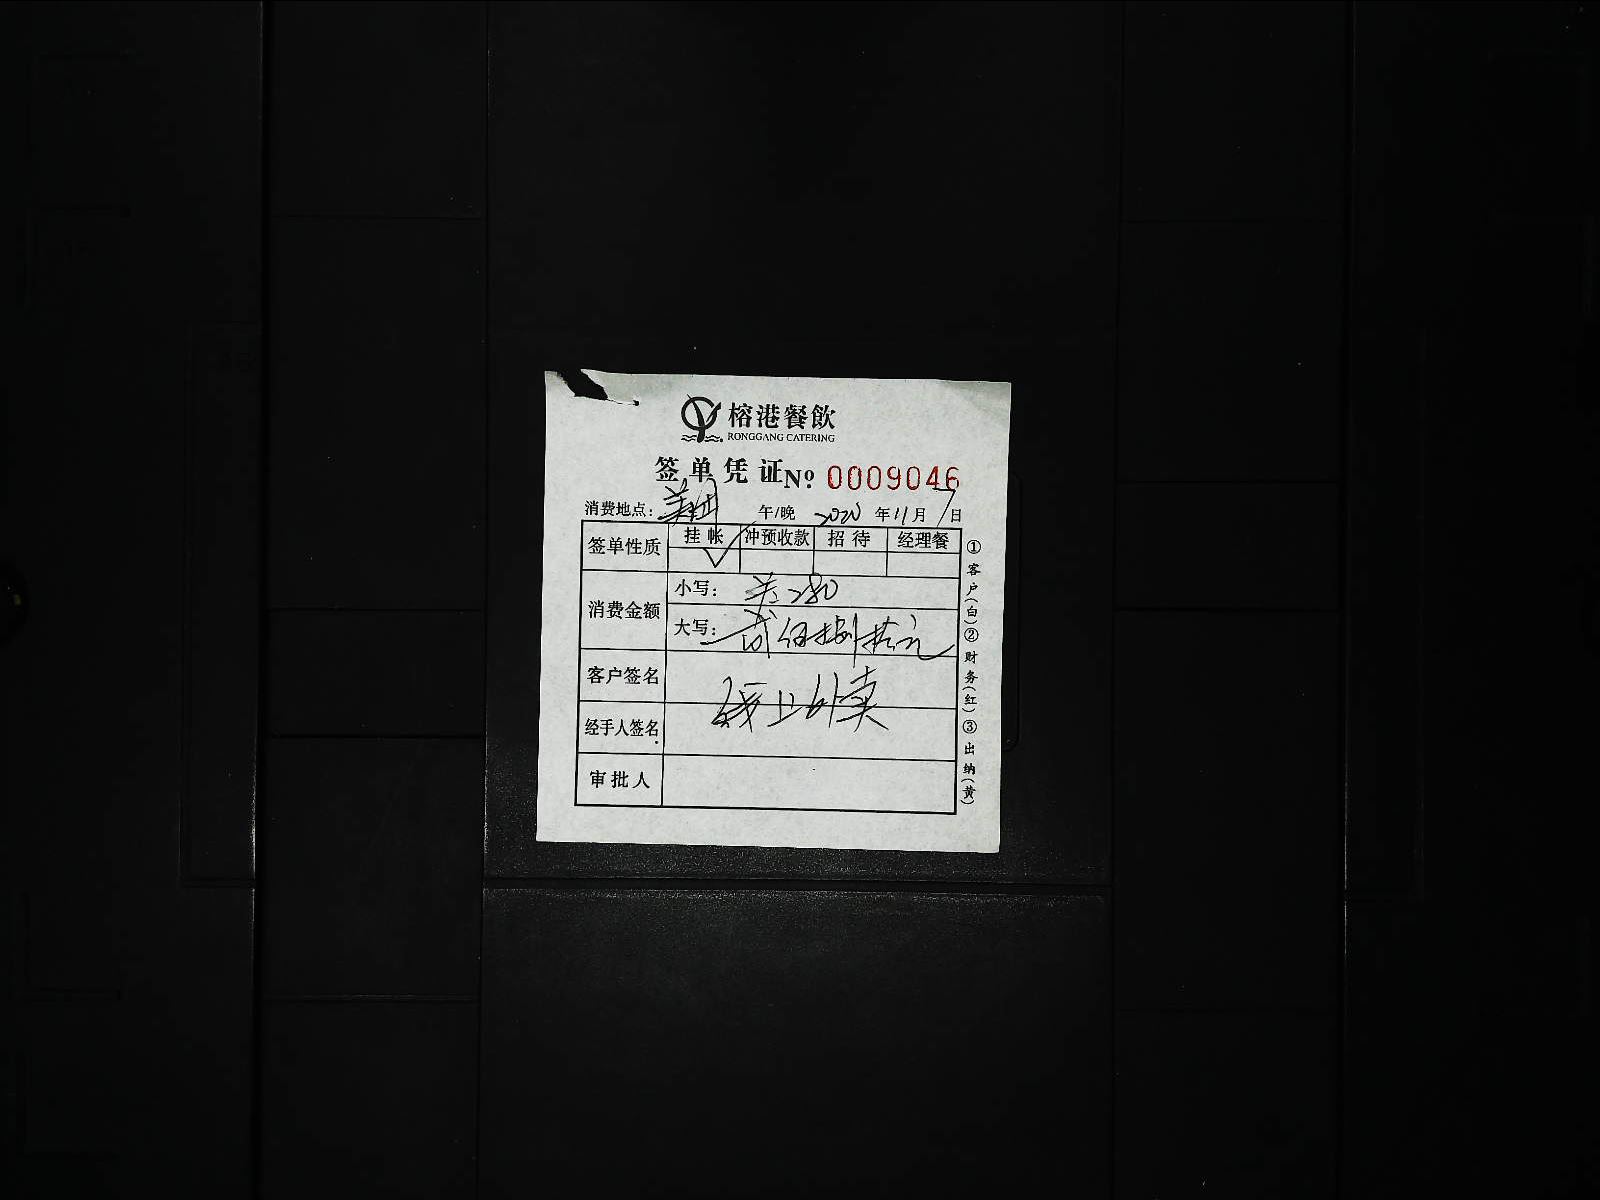 榕港餐飲
RONGGANG CATERING
签单凭证 Nº: 0009046
消费地点: 美团 午/晚 2020 年 11 月 7 日
签单性质 挂帐 冲预收款 招待 经理餐
✓
消费金额
小写: 280
大写: 贰佰捌拾元
客户签名
线上外卖
经手人签名
审批人
①客户(白)②财务(红)③出纳(黄)